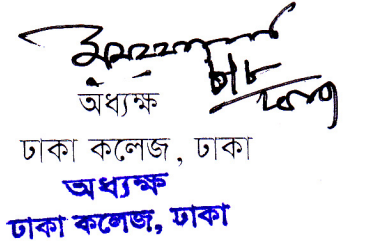 অধ্যক্ষ
ঢাকা কলেজ, ঢাকা
অধ্যক্ষ
ঢাকা কলেজ, ঢাকা